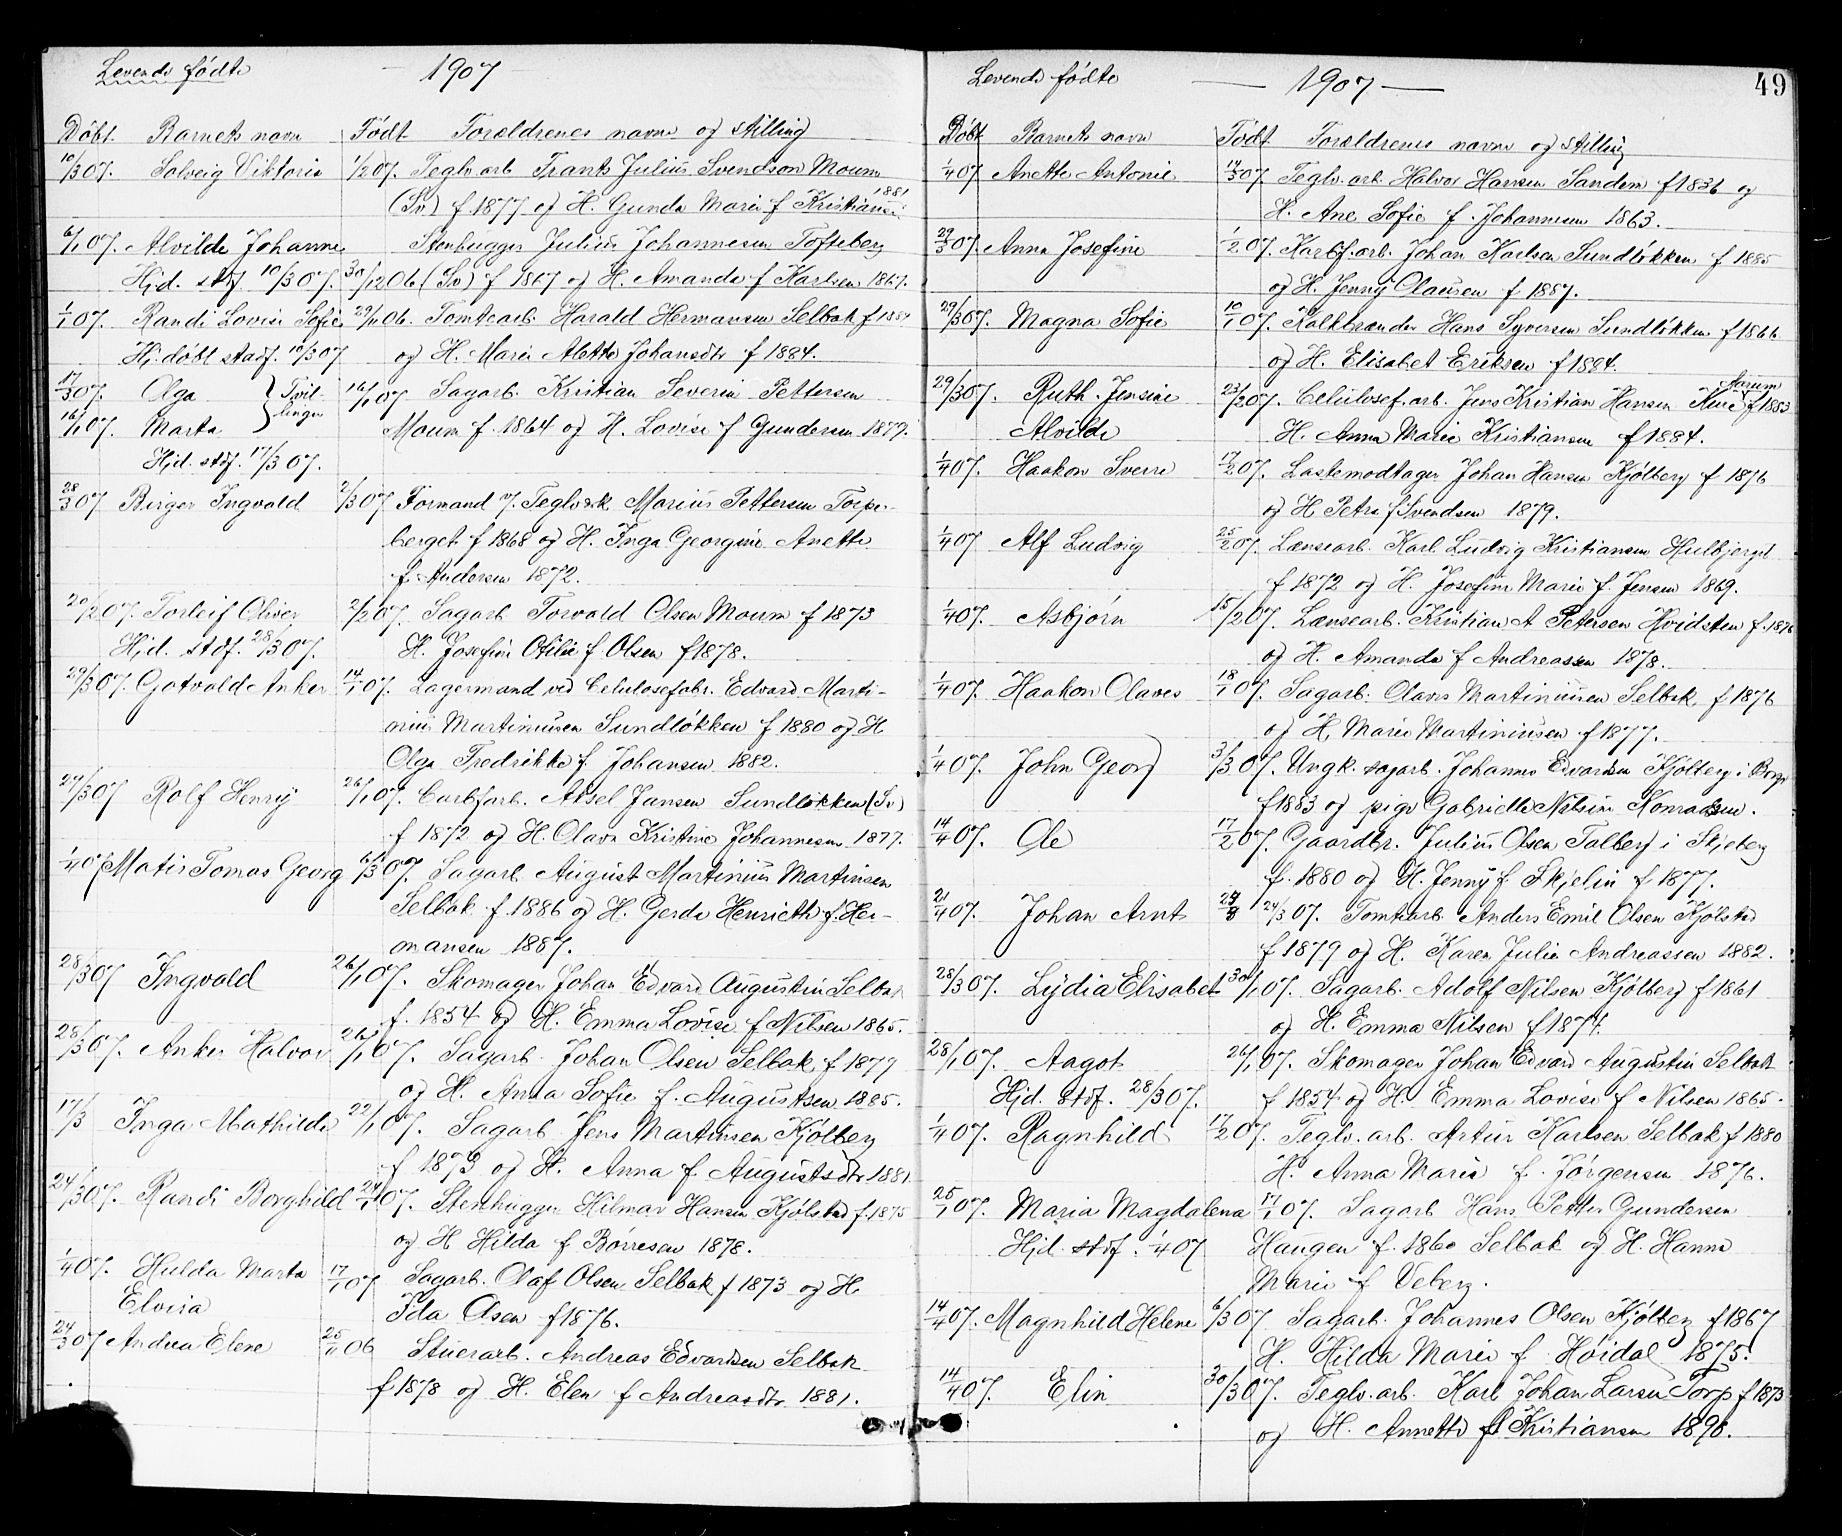 Levende fødte — 1907 —
Døbt. Barnets navn Født Forældrenes navne og stilling
10/3 07. Solveig Viktoria 1/2 07. Teglv.arb Frants Julius Svendsen Moum
(Sv) f 1877 og H. Gunda Marie f Kristiansen 1881
6/1 07. Alvilde Johanne Stenhugger Julius Johannesen Tofteberg
Hjd. stdf. 10/3 07. 30/12 06 (Sv) f 1867 og H. Amanda f Karlsen 1867.
1/1 07. Randi Lovise Sofie 29/11 06. Tomtearb. Harald Hermansen Selbak f 1884
Hj. døbt stadf. 10/3 07 og H. Marie Alette Johansdtr f 1884.
17/3 07. Olga } Tvil- 16/1 07 Sagarb. Kristian Severin Pettersen
16/1 07. Marta } linger Moum f. 1864 og H. Lovise f Gundersen 1877.
Hjd. stdf. 17/3 07.
28/3 07 Birger Ingvald 2/3 07 Formand v. Teglverk Marius Pettersen Torpe-
berget f 1868 og H. Inga Georgine Anette
f. Andersen 1872.
20/2 07. Torleif Oliver 2/2 07. Sagarb Torvald Olsen Moum f 1873
Hjd. stdf. 28/3 07. H. Josefine Otilie f. Olsen f 1878.
29/3 07. Gotvald Anker 14/1 07. Lagermand ved Celulosefabr. Edvard Marti-
nius Martinusen Sundløkken f 1880 og H
Olga Fredrikke f. Johansen 1882.
29/3 07 Rolf Henry 26/1 07. Carbfarb. Aksel Jansen Sundløkken (Sv)
f 1872 og H. Olava Kristine Johannesen 1877.
1/4 07 Matis Tomas Georg 6/3 07. Sagarb August Martinius Martinsen
Selbak f. 1886 og H. Gerda Henriette f. Her-
mansen 1887.
28/3 07 Ingvald 26/1 07. Skomager Johan Edvard Augustin Selbak
f. 1854 og H. Emma Lovise f Nilsen 1865.
28/3 07. Anker Halvor 26/1 07. Sagarb. Johan Olsen Selbak f 1877
og H. Anna Sofie f. Augustsen 1885.
17/3 Inga Mathilde 22/1 07. Sagarb Jens Martinsen Kjølberg
f 1873 og H. Anna f Augustsdtr 1881
24/3 07. Randi Borghild 24/1 07. Stenhugger Hilmar Hansen Kjølstad f. 1875
og H Hilda f Børresen 1878.
1/4 07. Hulda Marta 17/1 07 Sagarb. Olaf Olsen Selbak f 1873 og H
Elvira Ida Olsen f 1876.
24/3 07 Andrea Elene 25/11 06 Stuerarb. Andreas Edvardsen Selbak
f 1878 og H. Elen f Andreasdtr 1881.
Levende fødte — 1907 — 49
Døbt Barnets navn Født Forældrenes navne og stilling
1/4 07 Anette Antonie 14/3 07. Teglv.arb. Halvor Hansen Sandem f 1836 og
H. Ane Sofie f. Johannesen 1863.
29/3 07. Anna Josefine 1/2 07. Karbf.arb. Johan Karlsen Sundløkken f 1885
og H. Jenny Clausen f 1887.
29/3 07. Magna Sofie 10/1 07. Kalkbrænder Hans Syversen Sundløkken f 1866
og H. Elisabet Eriksen f 1884.
29/3 07. Ruth Jensine 23/2 07. Celulosef.arb. Jens Kristian Hansen f 1883
Alvilde H. Anna Marie Kristiansen f 1884.
1/4 07. Haakon Sverre 17/2 07. Lastemodtager Johan Hansen Kjølberg f 1876
og H Petra f Svendsen 1879.
1/4 07 Alf Ludvig 25/2 07. Lænsearb. Karl Ludvig Kristiansen Hulbjerget
f 1872 og H. Josefine Marie f. Jensen 1869.
1/4 07. Asbjørn 15/2 07. Lænsearb. Kristian A Petersen Hvidsten f. 1876
og H. Amanda f Andreassen 1878.
1/4 07. Haakon Olaves 18/1 07. Sagarb. Olaves Martiniusen Selbak f 1876
og H. Marie Martiniusen f 1877.
1/4 07. John Georg 3/3 07. Ungk. sagarb. Johannes Edvardsen Kjølberg i Borge
f 1883 og pige Gabrielle Nilsine Konradsen.
14/4 07. Ole 17/2 07. Gaardbr. Julius Olsen Talberg i Skjeberg
f. 1880 og H. Jenny f. Skjelin f 1877.
21/4 07. Johan Arnt 24/3 07. Tomtarb. Anders Emil Olsen Kjølstad
f 1879 og H. Karen Julie Andreassen 1882.
28/3 07. Lydia Elisabet 30/1 07. Sagarb. Adolf Nilsen Kjølberg f 1861
og H. Emma Nilsen f 1874.
28/1 07. Aagot 26/1 07. Skomager Johan Edvard Augustin Selbak
Hjd. stdf. 28/3 07. f 1854 og H. Emma Lovise f Nilsen 1865.
1/4 07. Ragnhild 17/2 07. Teglv.arb. Artur Karlsen Selbak f 1880
H. Anna Maria f. Jørgensen 1876.
25/1 07. Maria Magdalena 17/1 07. Sagarb Hans Petter Gundersen
Hjd. stdf. 1/4 07 Haugen f. 1860 Selbak og H. Hanna
Marie f Veberg.
14/4 07. Magnhild Helene 6/3 07 Sagarb. Johannes Olsen Kjølberg f 1867
H. Hilda Marie f Høidal 1875.
14/4 07. Elin 30/3 07. Teglv.arb. Karl Johan Larsen Torp f 1873
og H. Annette f Kristiansen 1898.